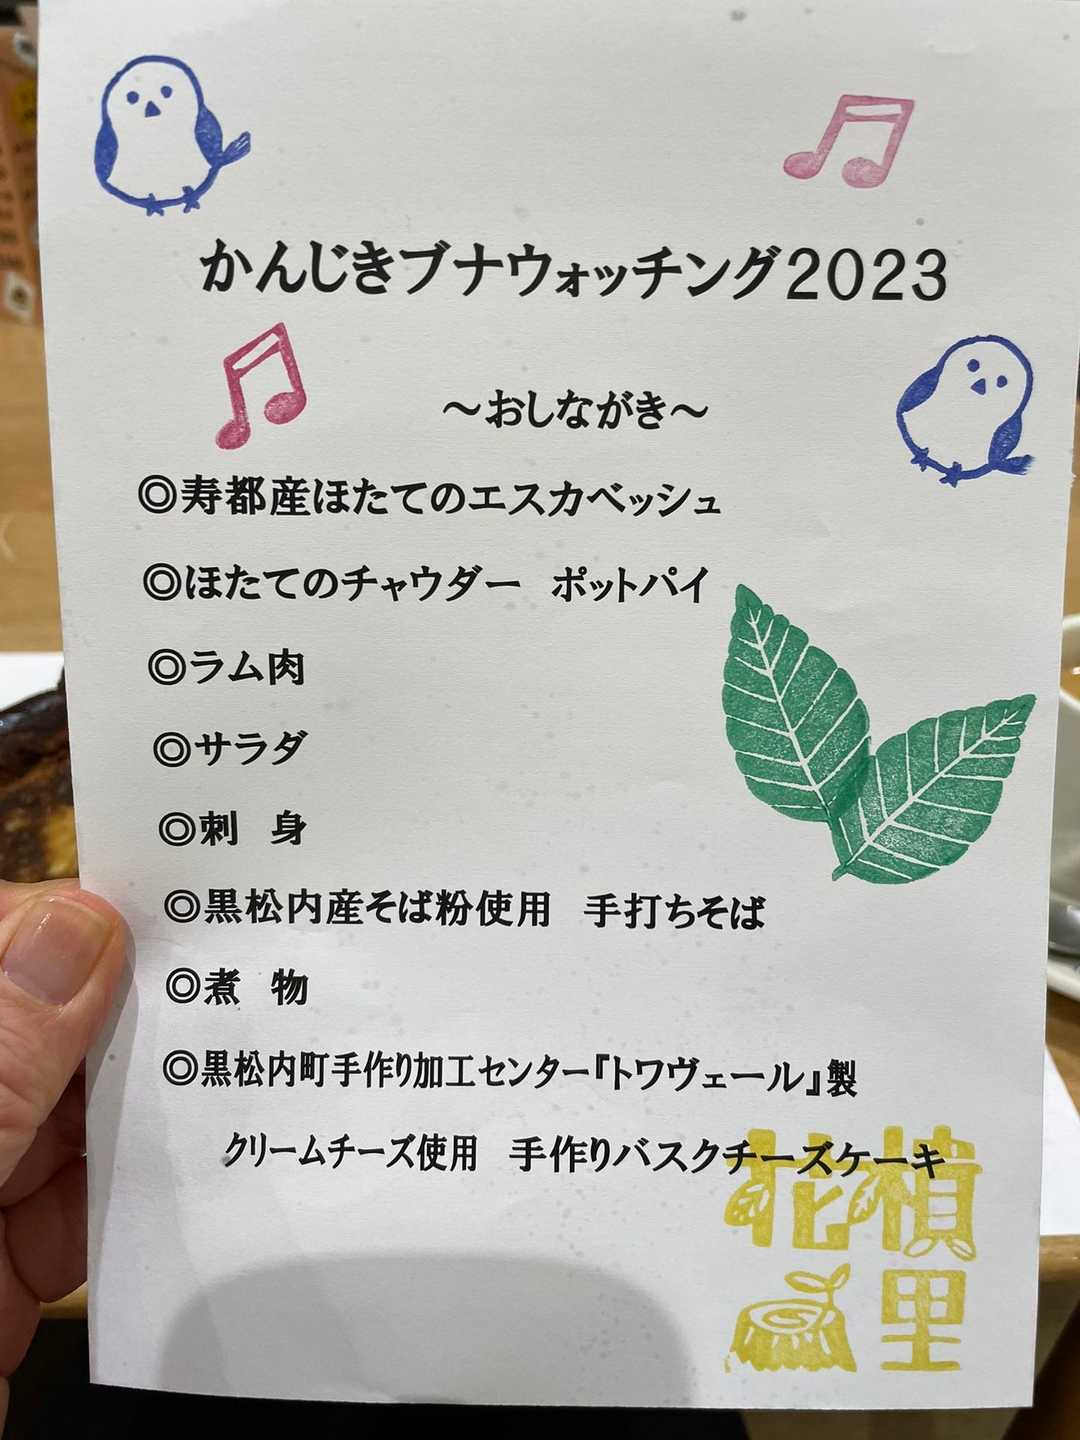 かんじきブナウォッチング2023
～おしながき～
◎寿都産ほたてのエスカベッシュ
◎ほたてのチャウダー　ポットパイ
◎ラム肉
◎サラダ
◎刺　身
◎黒松内産そば粉使用　手打ちそば
◎煮　物
◎黒松内町手作り加工センター『トワヴェール』製
クリームチーズ使用　手作りバスクチーズケーキ